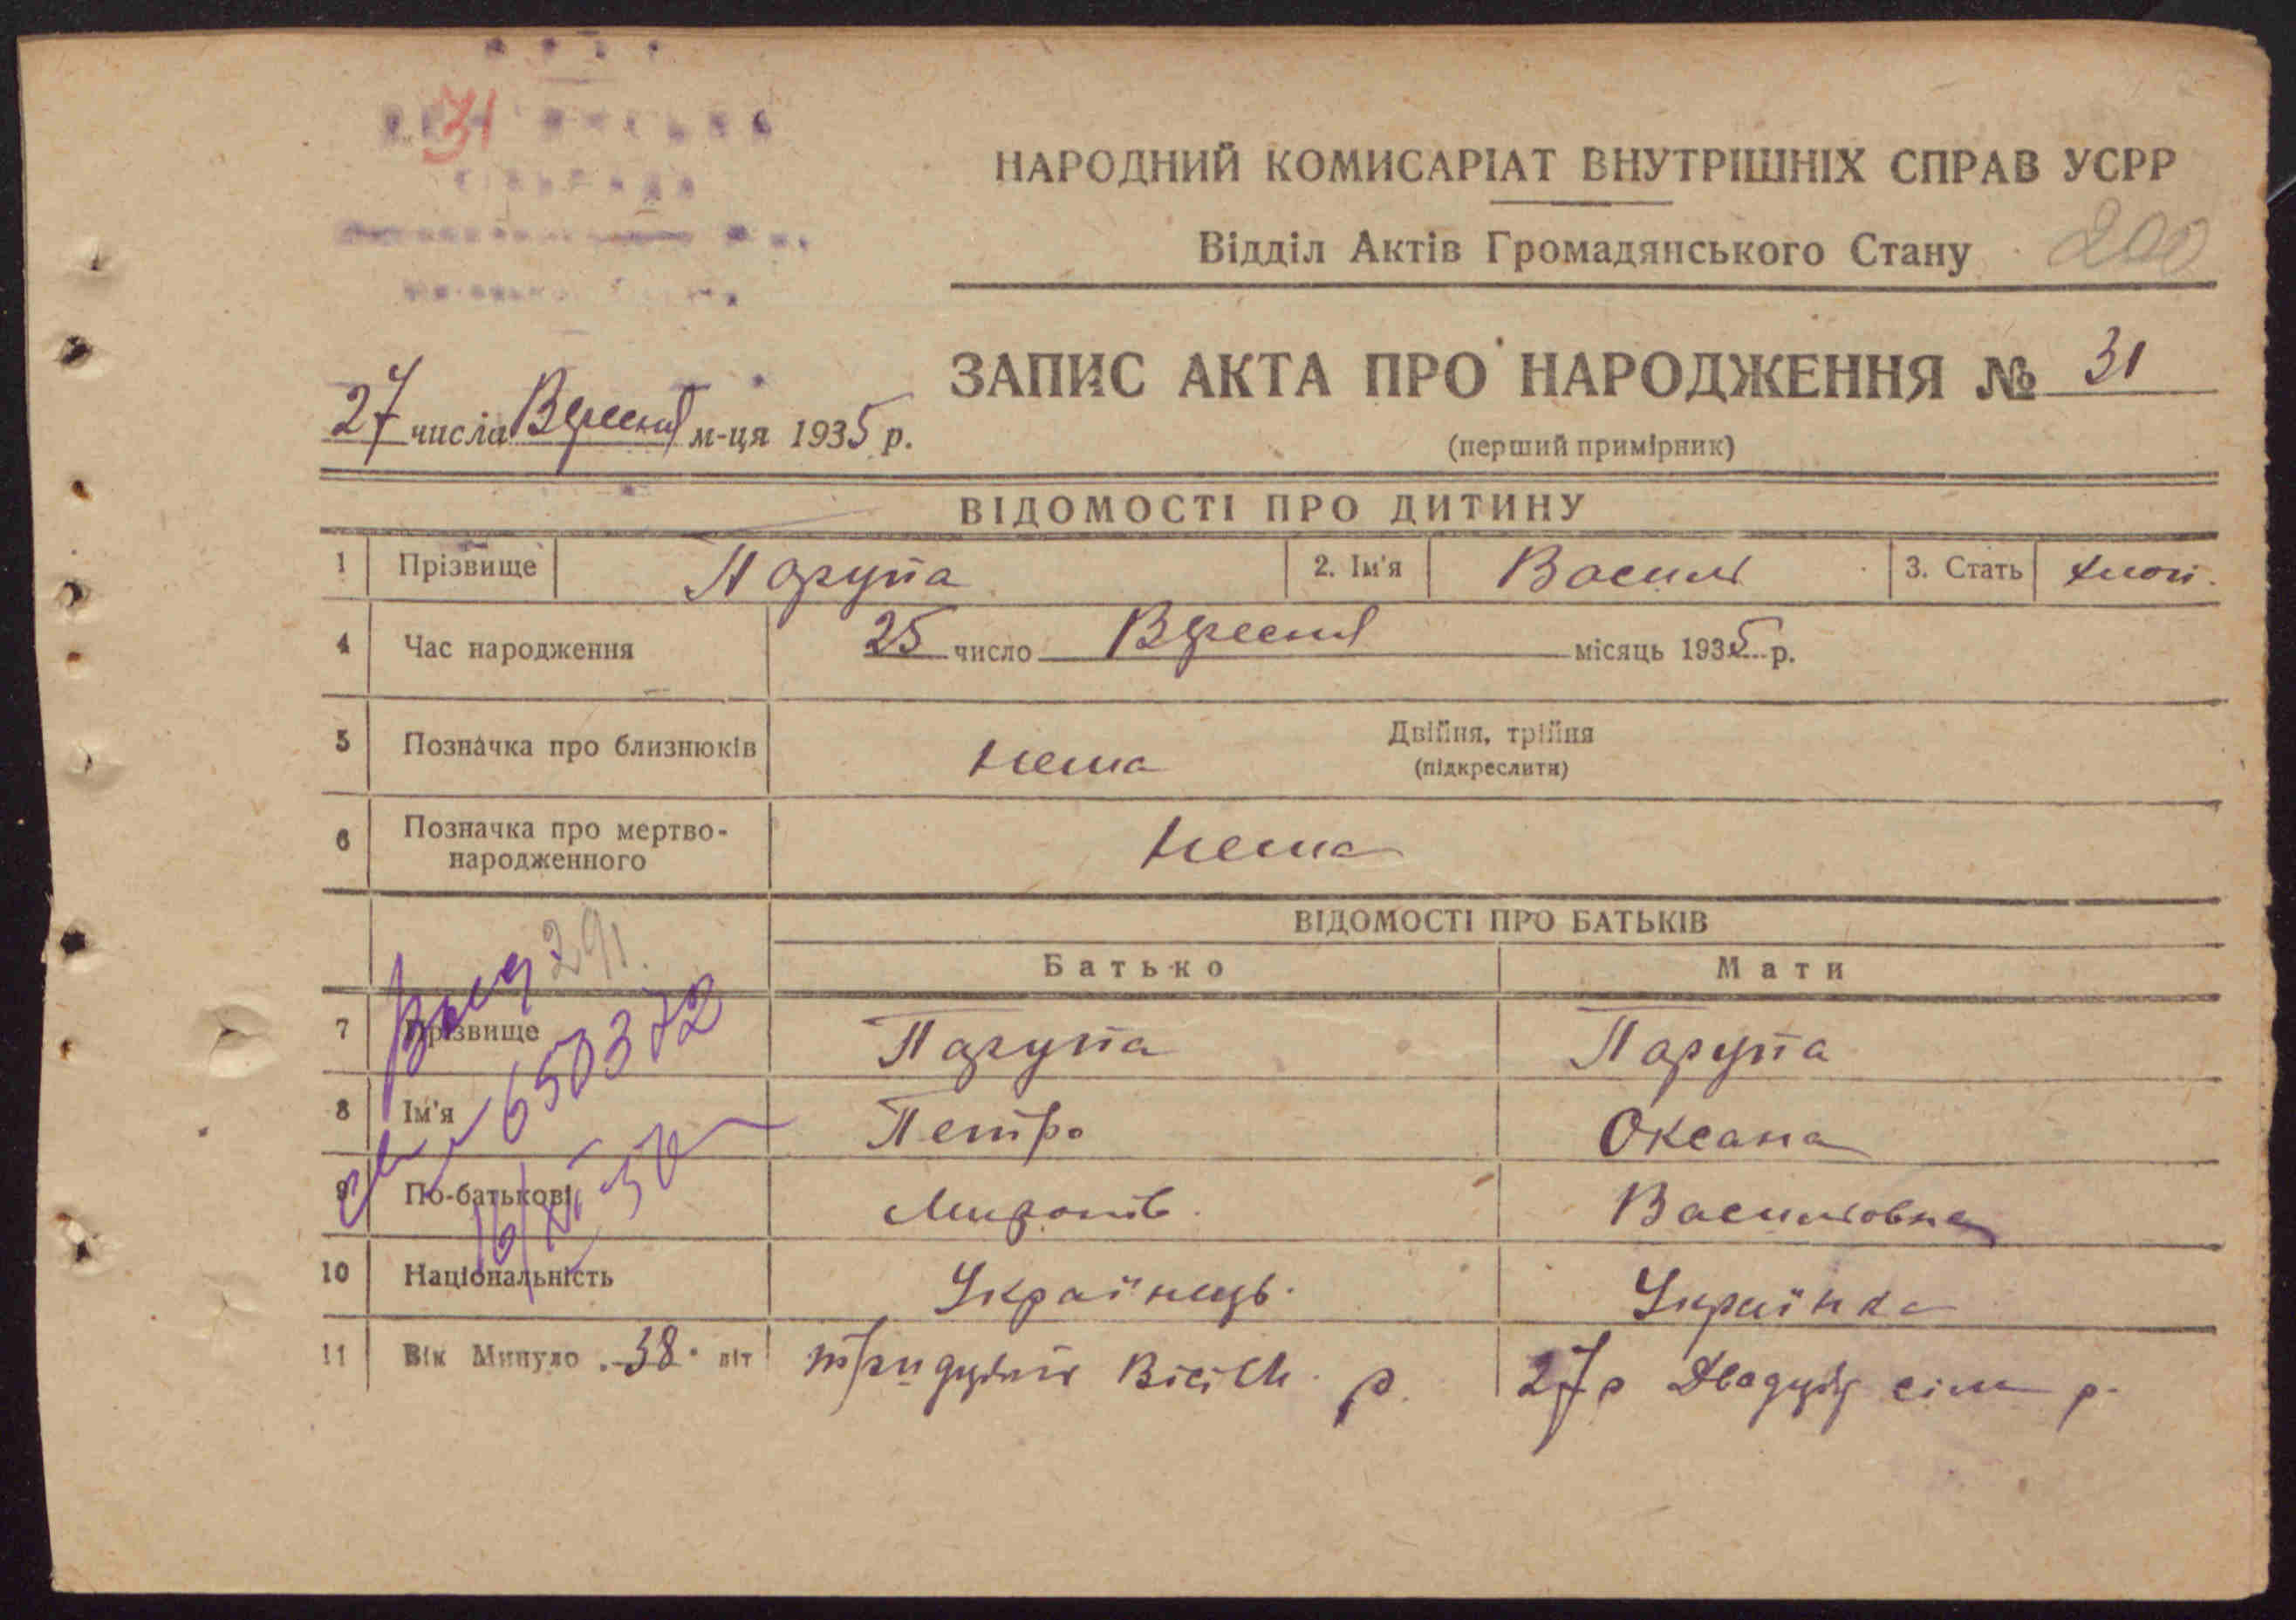 31
НАРОДНИЙ КОМИСАРІАТ ВНУТРІШНІХ СПРАВ УСРР
Відділ Актів Громадянського Стану 200
ЗАПИС АКТА ПРО НАРОДЖЕННЯ № 31
27 числа Вересня м-ця 1935 р.
(перший примірник)
ВІДОМОСТІ ПРО ДИТИНУ
1 Прізвище Парупа 2. Ім'я Василь 3. Стать
4 Час народження 25 число Вересня місяць 1935 р.
5 Позначка про близнюків нема Двійня, трійня
(підкреслити)
6 Позначка про мертво-
народженного нема
291.
ВІДОМОСТІ ПРО БАТЬКІВ
Батько Мати
7 Прізвище Парупа Парупа
8 Ім'я Петро Оксана
650372
9 По-батькові Миронів. Васильовна
10 Національність Українець. Українка
11 Вік Минуло 38 літ тридцять Вісім р. 27 р Двадцять сім р.